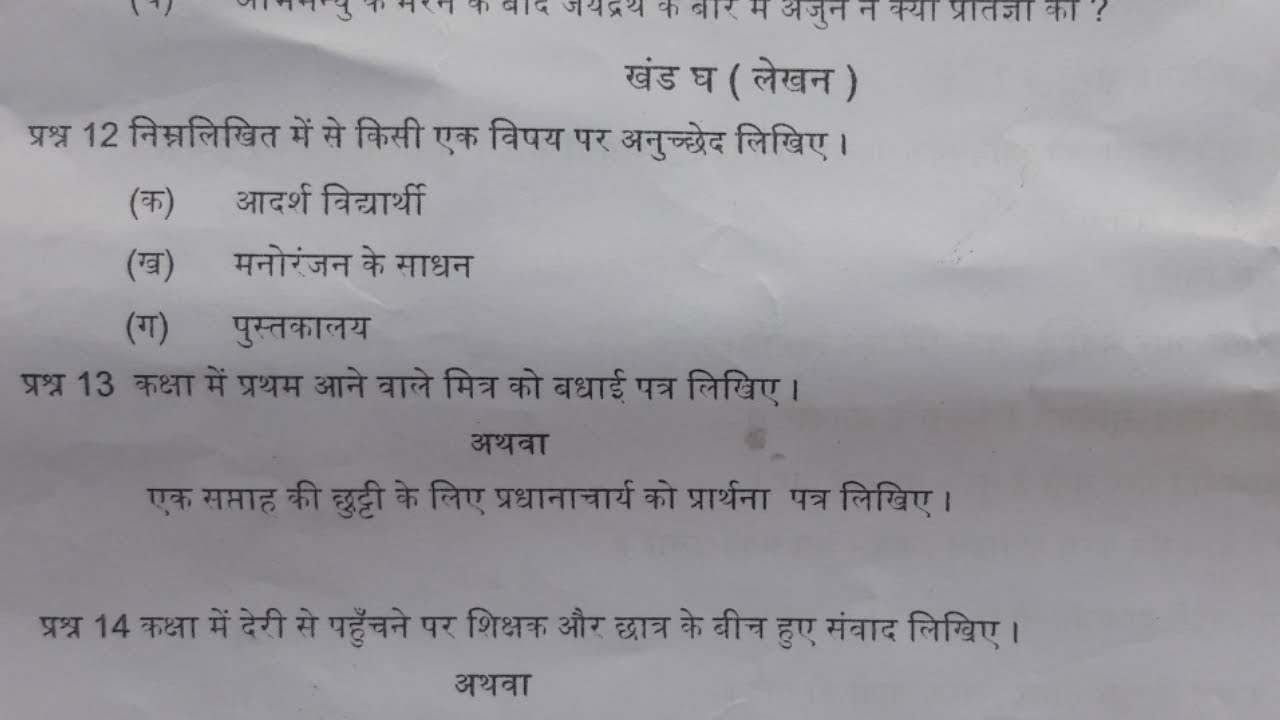 अभिमन्यु के मरने के बाद जयद्रथ के बारे में अर्जुन ने क्या प्रतिज्ञा की ?
खंड घ ( लेखन )
प्रश्न 12 निम्नलिखित में से किसी एक विषय पर अनुच्छेद लिखिए ।
(क) आदर्श विद्यार्थी
(ख) मनोरंजन के साधन
(ग) पुस्तकालय
प्रश्न 13 कक्षा में प्रथम आने वाले मित्र को बधाई पत्र लिखिए ।
अथवा
एक सप्ताह की छुट्टी के लिए प्रधानाचार्य को प्रार्थना पत्र लिखिए ।
प्रश्न 14 कक्षा में देरी से पहुँचने पर शिक्षक और छात्र के बीच हुए संवाद लिखिए ।
अथवा